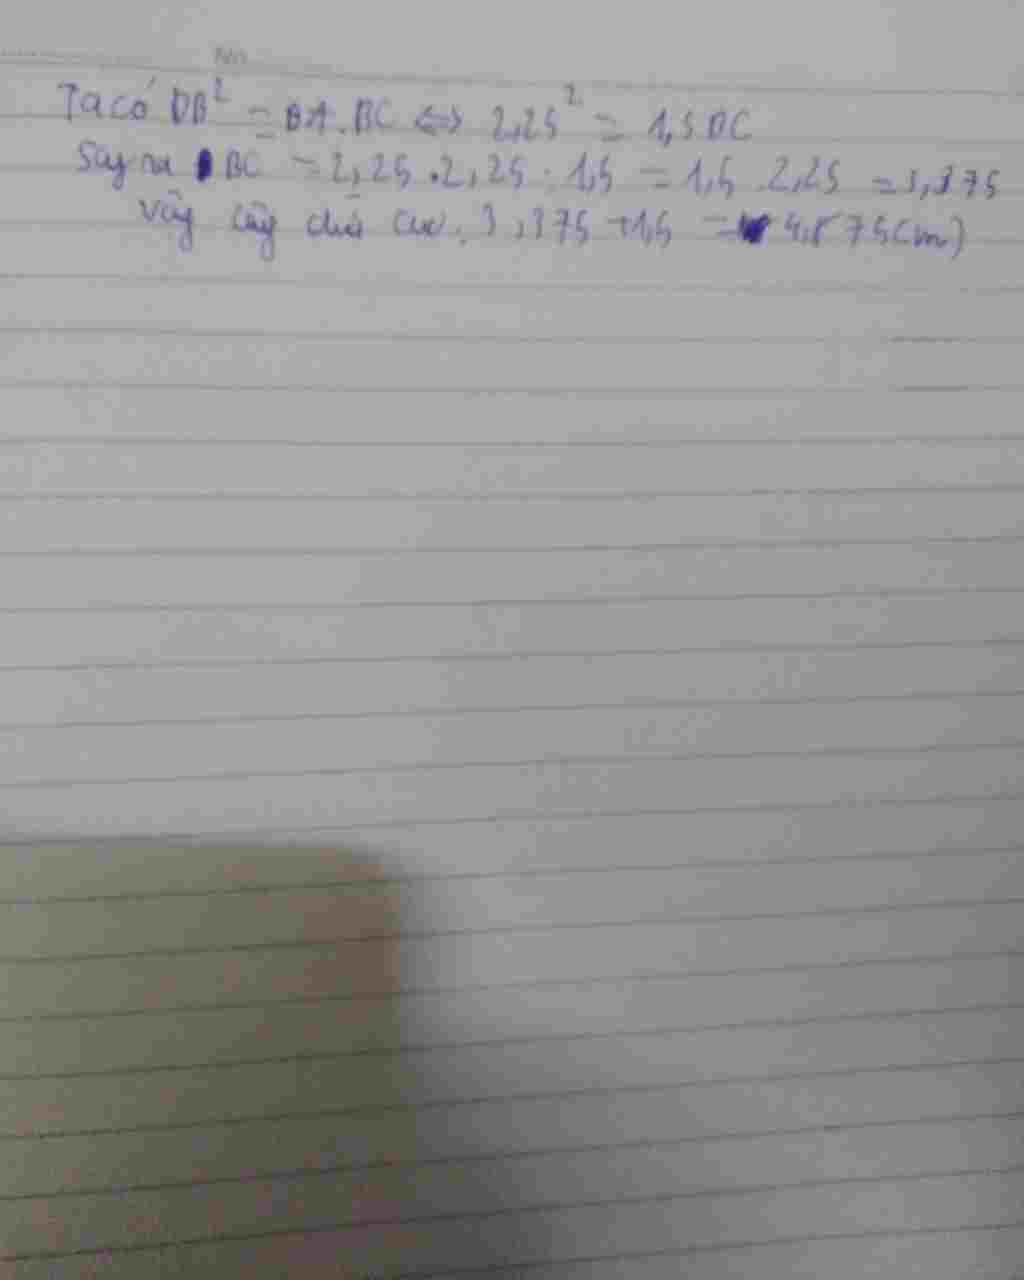 Ta có DB² = BA.BC <=> 2,25² = 1,5 BC
Suy ra BC = 2,25 . 2,25 : 1,5 = 1,5 . 2,25 = 3,375
Vậy cây dừa cao: 3,375 + 1,5 = 4,875 (m)